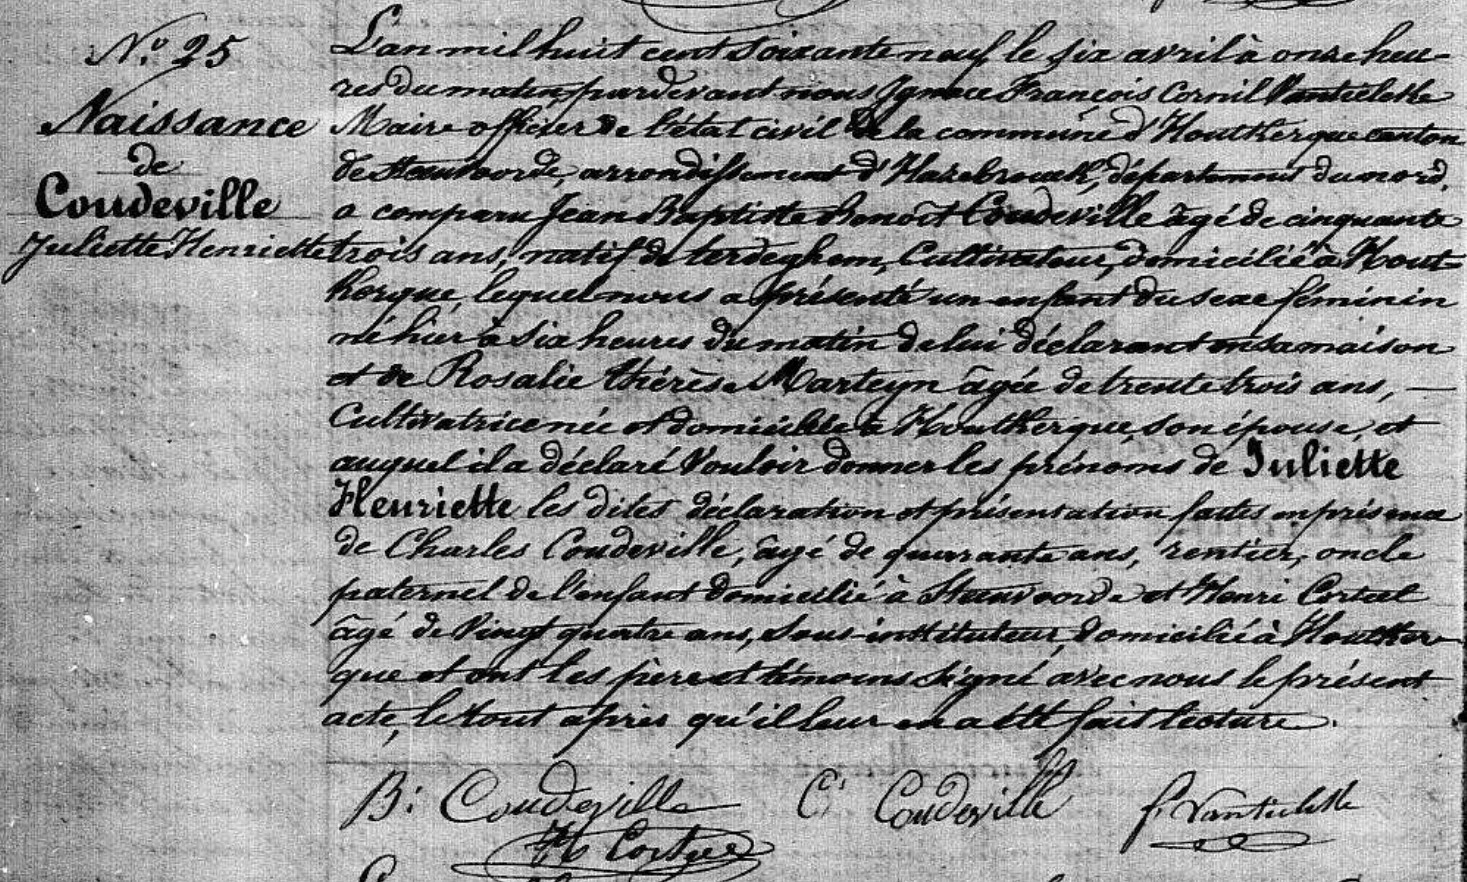 N.° 25
Naissance
de
Coudeville
Juliette Henriette
L'an mil huit cent soixante neuf le six avril à onze heu-
res du matin, pardevant nous Ignace François Cornil Vantielcke
Maire officier de l'état civil de la commune d'Houtkerque canton
de Steenvoorde, arrondissement d'Hazebrouck, département du nord,
a comparu Jean Baptiste Benoît Coudeville âgé de cinquante
trois ans, natif de terdeghem, Cultivateur, domicilié à Hout-
kerque, lequel nous a présenté un enfant du sexe féminin
né hier à six heures du matin de lui déclarant en sa maison
et de Rosalie thérèse Marteyn âgée de trente trois ans, —
Cultivatrice née et domiciliée à Houtkerque, son épouse, et
auquel il a déclaré Vouloir donner les prénoms de Juliette
Henriette les dites déclaration et présentation faites en présence
de Charles Coudeville, âgé de quarante ans, rentier, oncle
paternel de l'enfant domicilié à Steenvoorde et Henri
âgé de Vingt quatre ans, sous-instituteur, domicilié à Houtker-
que et ont les père et témoins signé avec nous le présent
acte, le tout après qu'il leur en a été fait lecture.
B: Coudeville C^s Coudeville f. Vantielcke